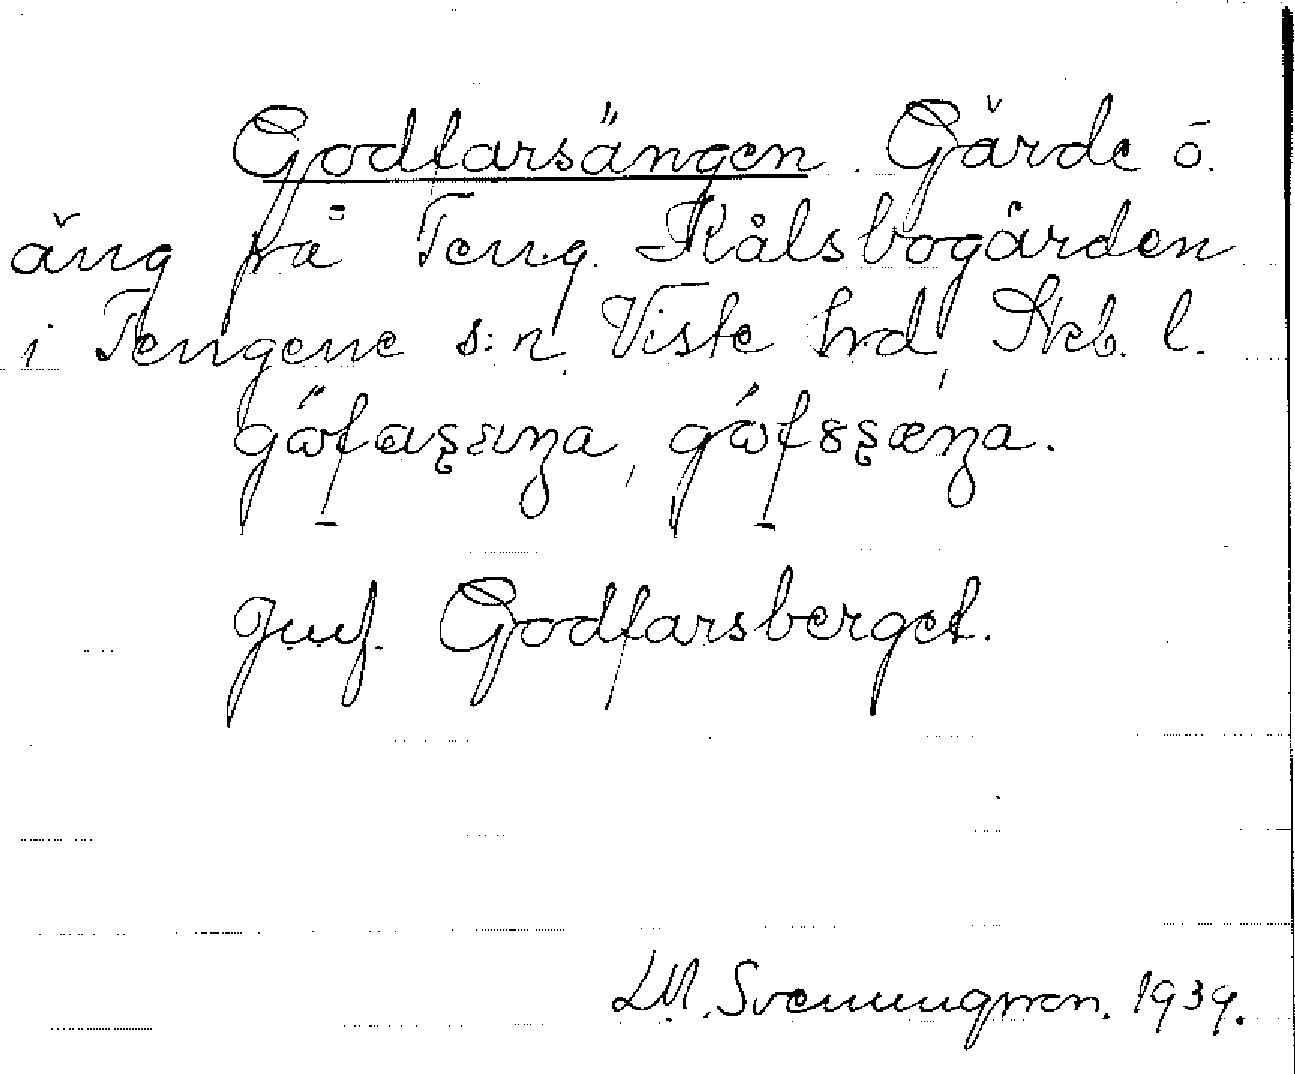 Godfarsängen. Gärde o.
äng frå Teng. Kålsbogården
i Tengene s:n. Viste hrd, Skb. l.
Jmf. Godfarsberget.
LM. Svenungsson. 1939.